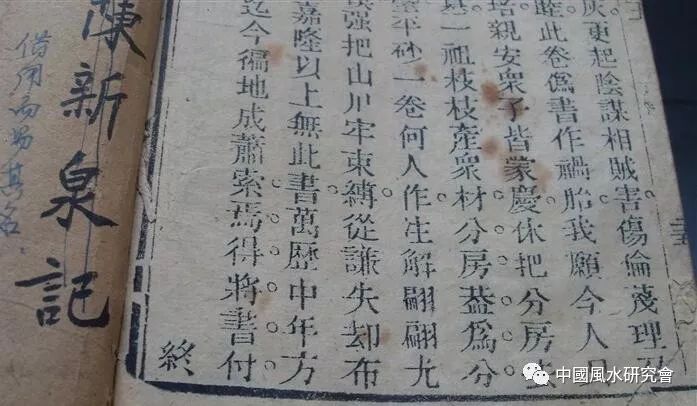 更起陰謀相賊害傷倫蔑理
此卷僞書作禍胎我願今人
親安衆子皆蒙慶休把分房
一祖枝枝產衆材分房葢爲分
平砂一卷何人作注解翩翩尤
强把山川牢束縛從謙失却布
嘉隆以上無此書萬歷中年方
迄今徧地成蕭索焉得將書付
終
陳新泉記
借用而易其名
中國風水研究會